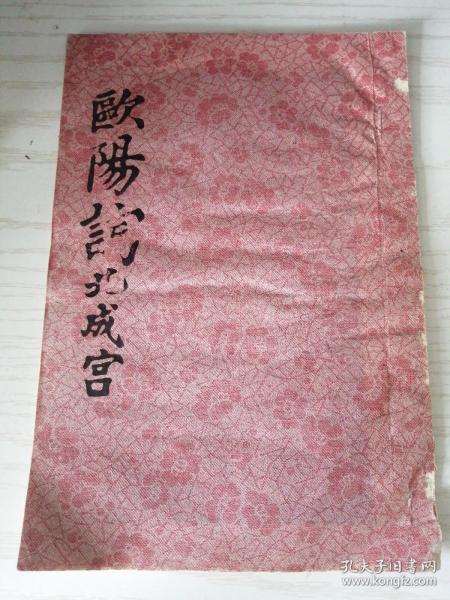 歐陽詢九成宮
孔夫子旧书网
www.kongfz.com